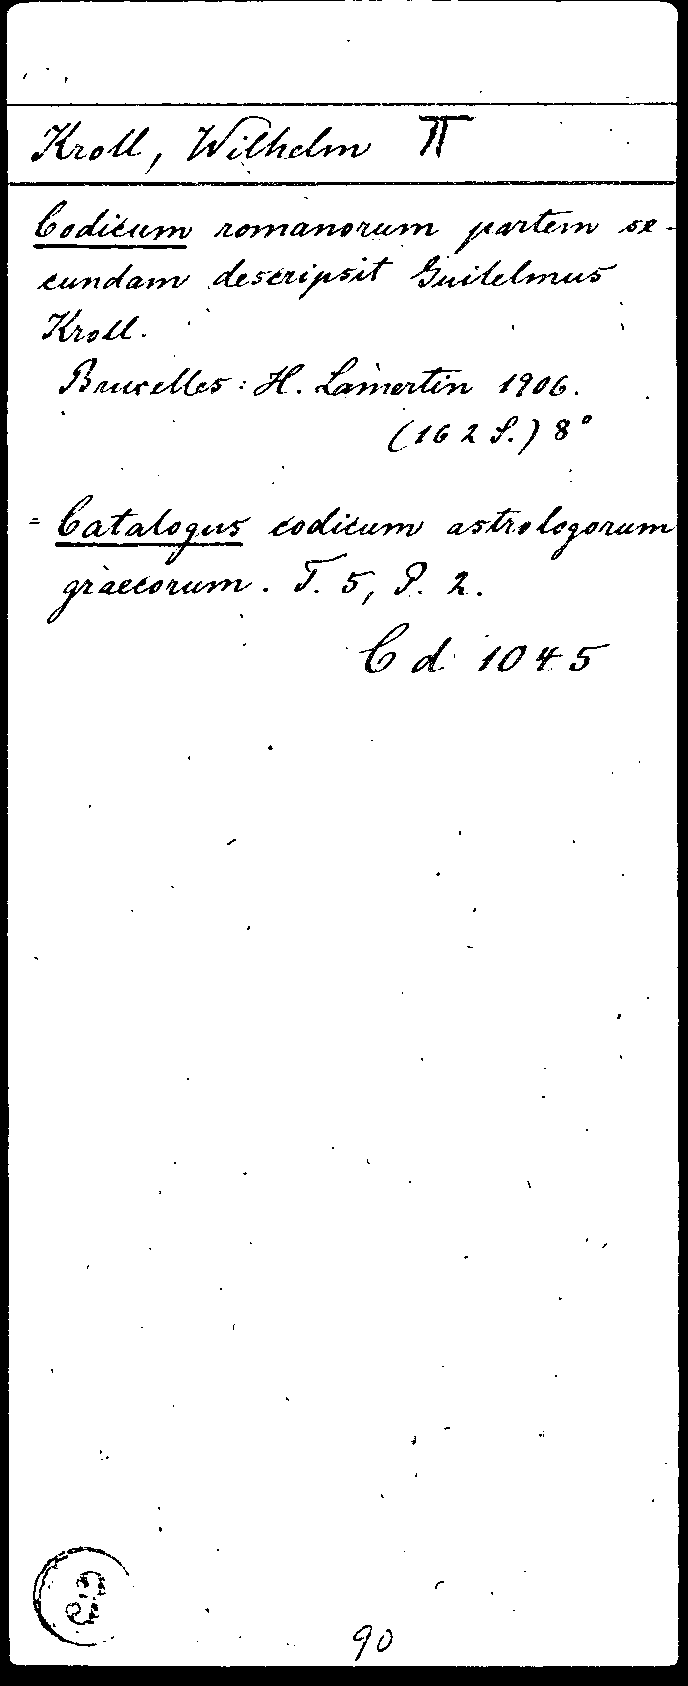 Kroll, Wilhelm II
Codicum romanorum partem se-
cundam descripsit Guilelmus
Kroll.
Bruxelles: H. Lamertin 1906.
(162 S.) 8°
= Catalogus codicum astrologorum
graecorum. T. 5, P. 2.
C d 1045
90